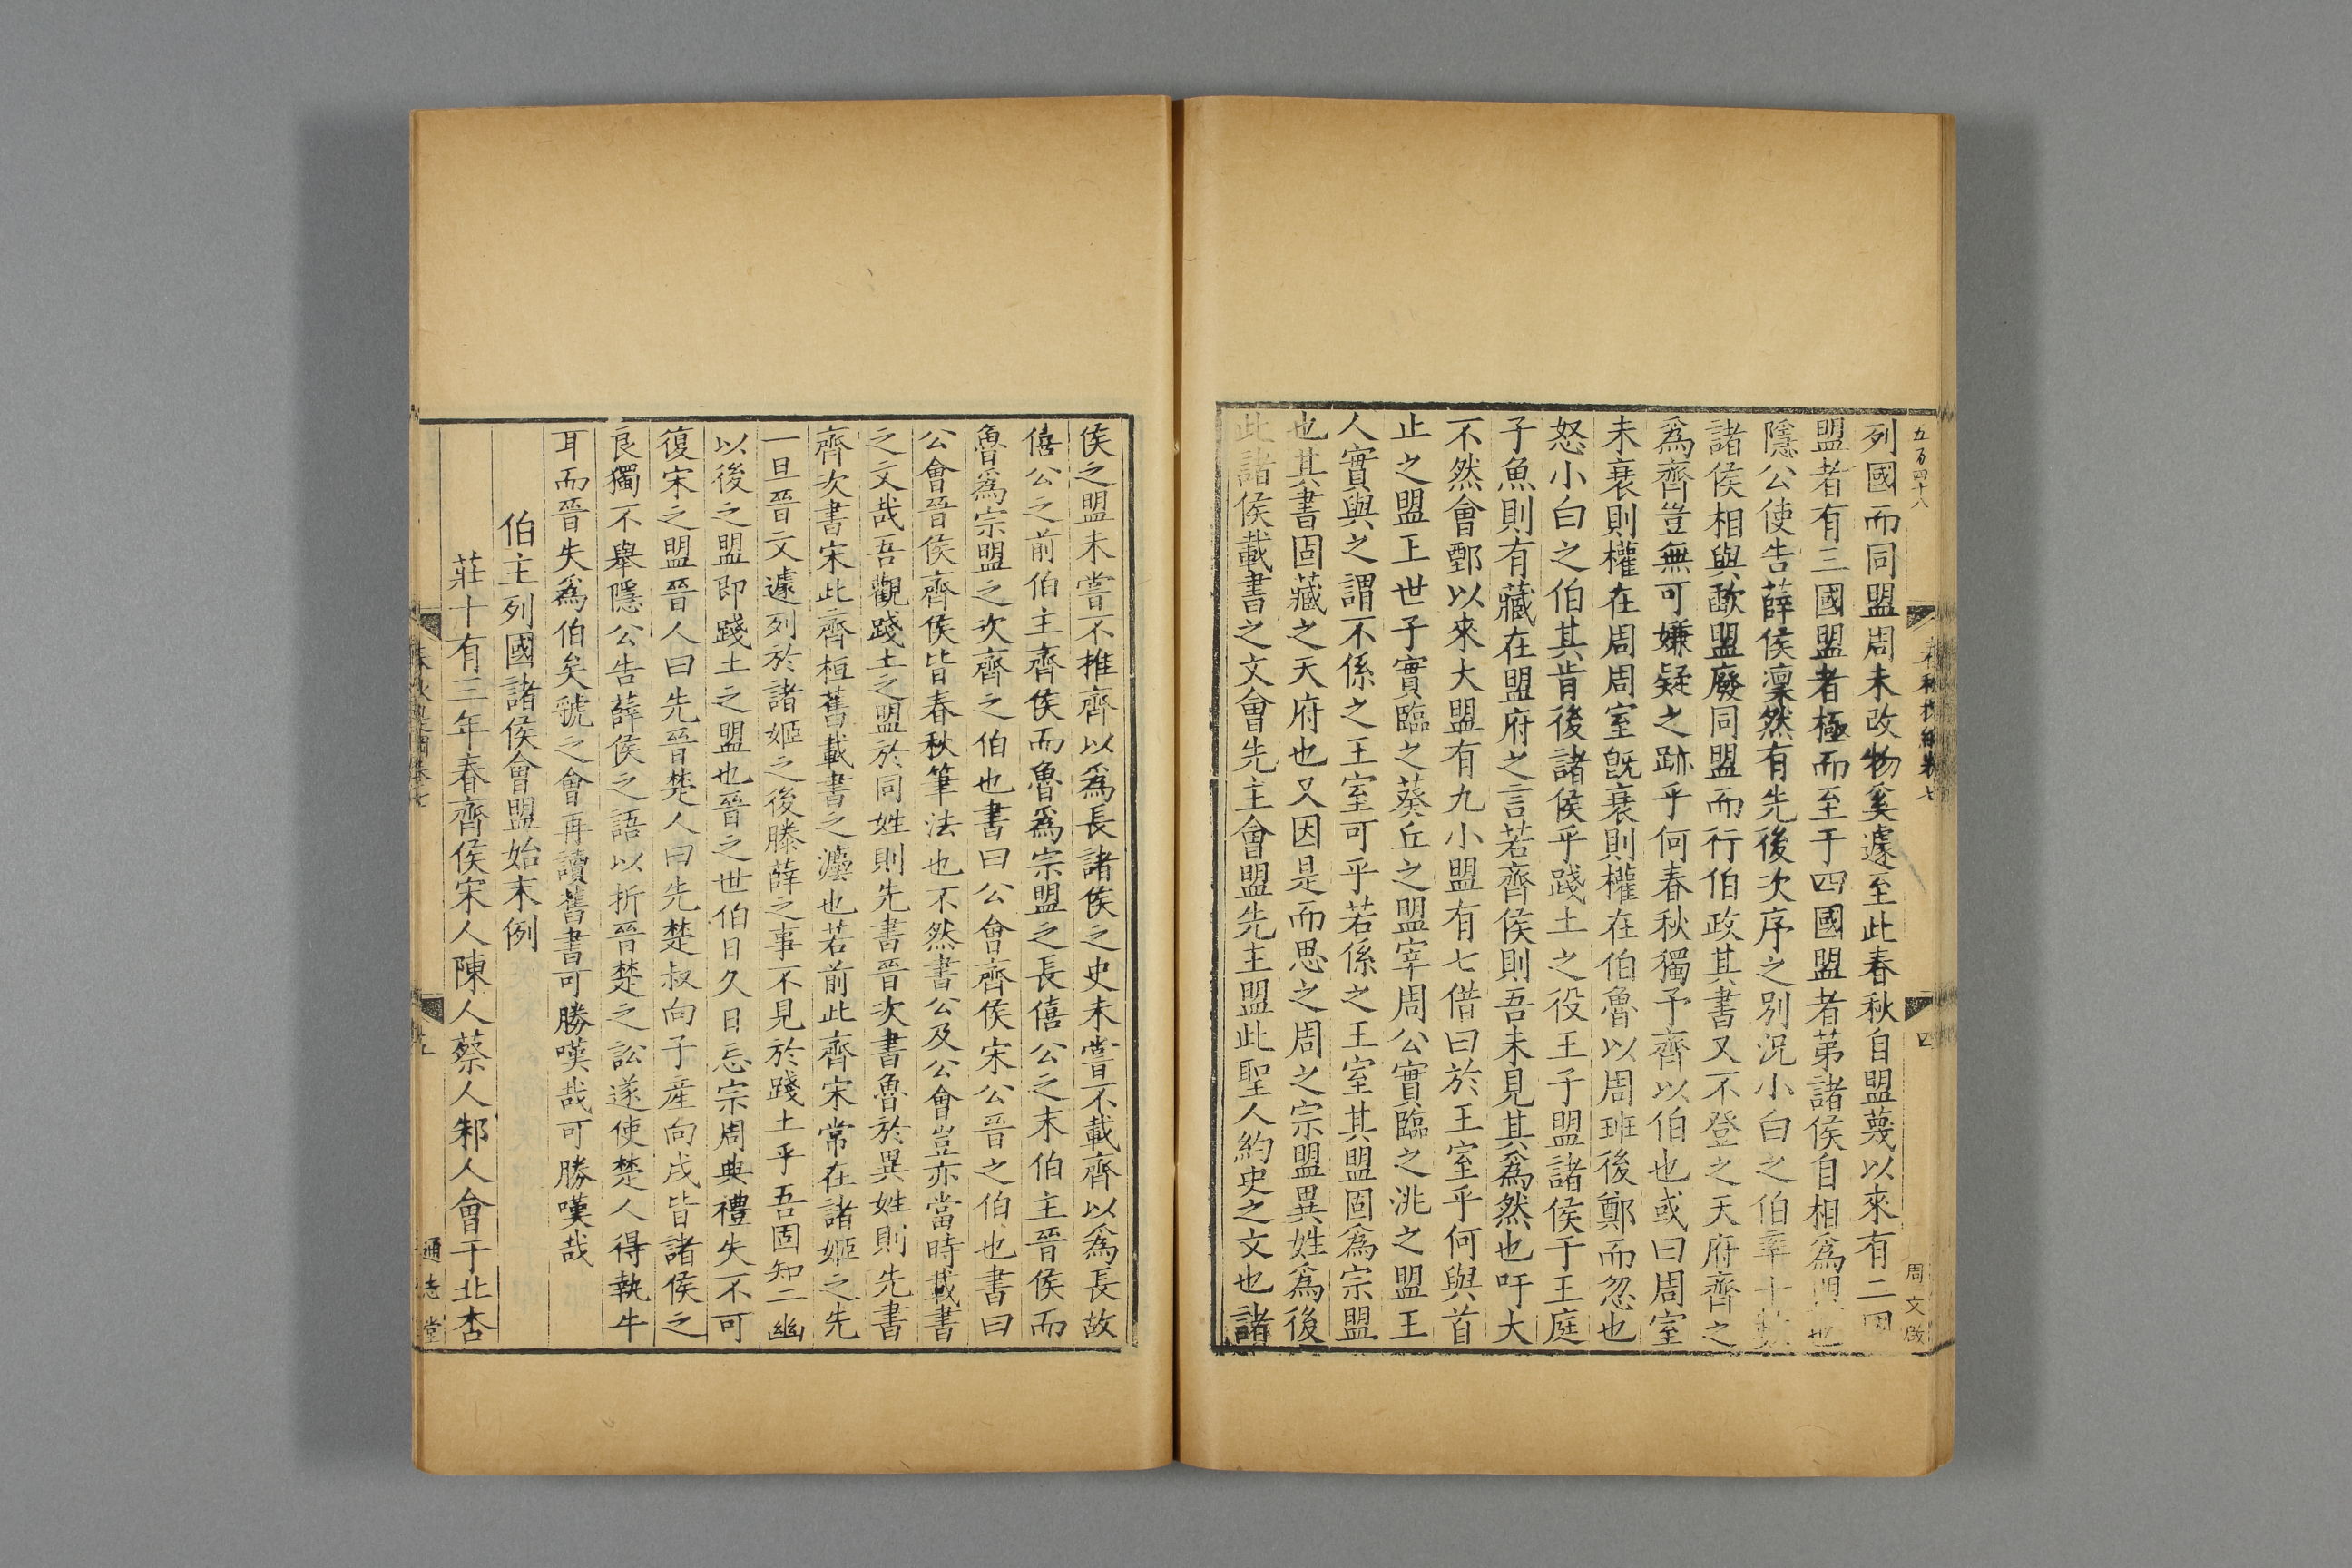 五百四十八
四
周文啟
列國而同盟周未改物奚遽至此春秋自盟蔑以來有二國
盟者有三國盟者極而至于四國盟者第諸侯自相爲盟也
隱公使告薛侯凜然有先後次序之別況小白之伯率十數
諸侯相與歃盟廢同盟而行伯政其書又不登之天府齊之
爲齊豈無可嫌疑之跡乎何春秋獨予齊以伯也或曰周室
未衰則權在周周室旣衰則權在伯魯以周班後鄭而忽也
怒小白之伯其肯後諸侯乎踐土之役王子盟諸侯于王庭
子魚則有藏在盟府之言若齊侯則吾未見其爲然也吁大
不然會鄄以來大盟有九小盟有七借曰於王室乎何與首
止之盟王世子實臨之葵丘之盟宰周公實臨之洮之盟王
人實與之謂不係之王室可乎若係之王室其盟固爲宗盟
也其書固藏之天府也又因是而思之周之宗盟異姓爲後
此諸侯載書之文會先主會盟先主盟此聖人約史之文也諸
侯之盟未嘗不推齊以爲長諸侯之史未嘗不載齊以爲長故
僖公之前伯主齊侯而魯爲宗盟之長僖公之末伯主晉侯而
魯爲宗盟之次齊之伯也書曰公會齊侯宋公晉之伯也書曰
公會晉侯齊侯皆春秋筆法也不然書公及公會豈亦當時載書
之文哉吾觀踐土之盟於同姓則先書晉次書魯於異姓則先書
齊次書宋此齊桓舊載書之灋也若前此齊宋常在諸姬之先
一旦晉文遽列於諸姬之後滕薛之事不見於踐土乎吾固知二幽
以後之盟即踐土之盟也晉之世伯日久日忘宗周典禮失不可
復宋之盟晉人曰先晉楚人曰先楚叔向子產向戌皆諸侯之
良獨不舉隱公告薛侯之語以折晉楚之訟遂使楚人得執牛
耳而晉失爲伯矣虢之會再讀舊書可勝嘆哉可勝嘆哉
伯主列國諸侯會盟始末例
莊十有三年春齊侯宋人陳人蔡人邾人會于北杏
通志堂